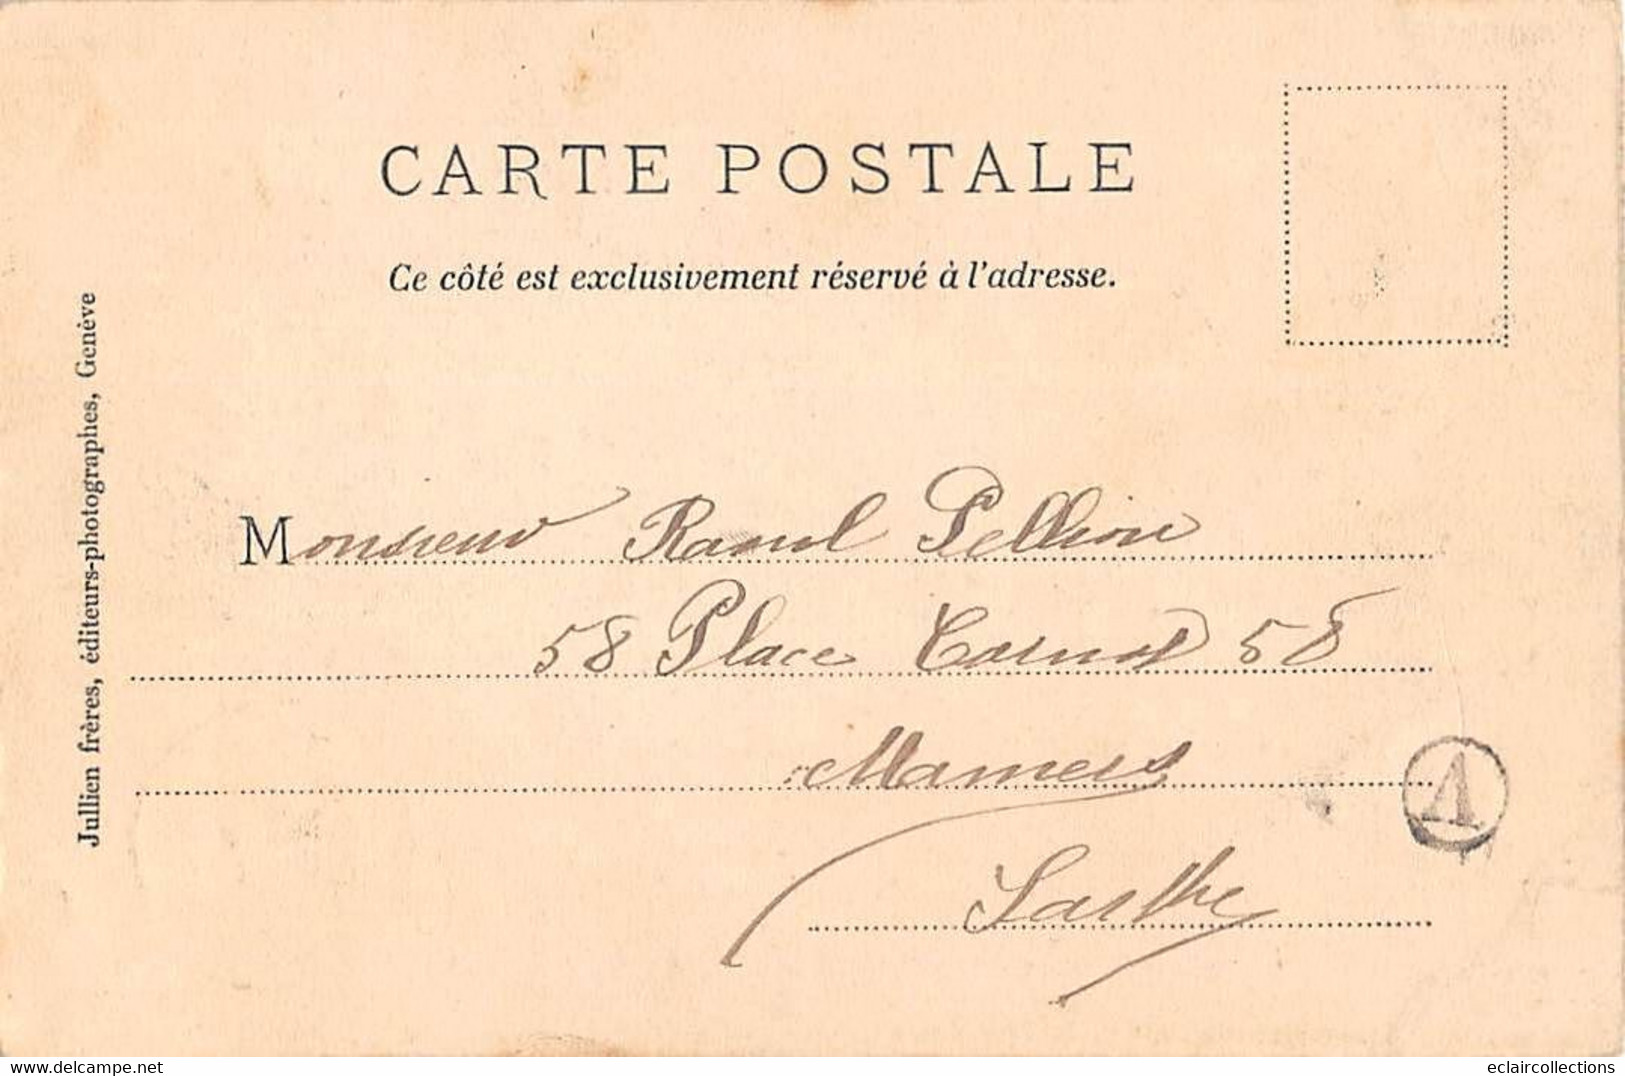 CARTE POSTALE
Ce côté est exclusivement réservé à l'adresse.
Monsieur Raoul Pellion
58 Place Carnot 58
Mamers
Sarthe
A
Jullien frères, éditeurs-photographes, Genève
eclaircollections